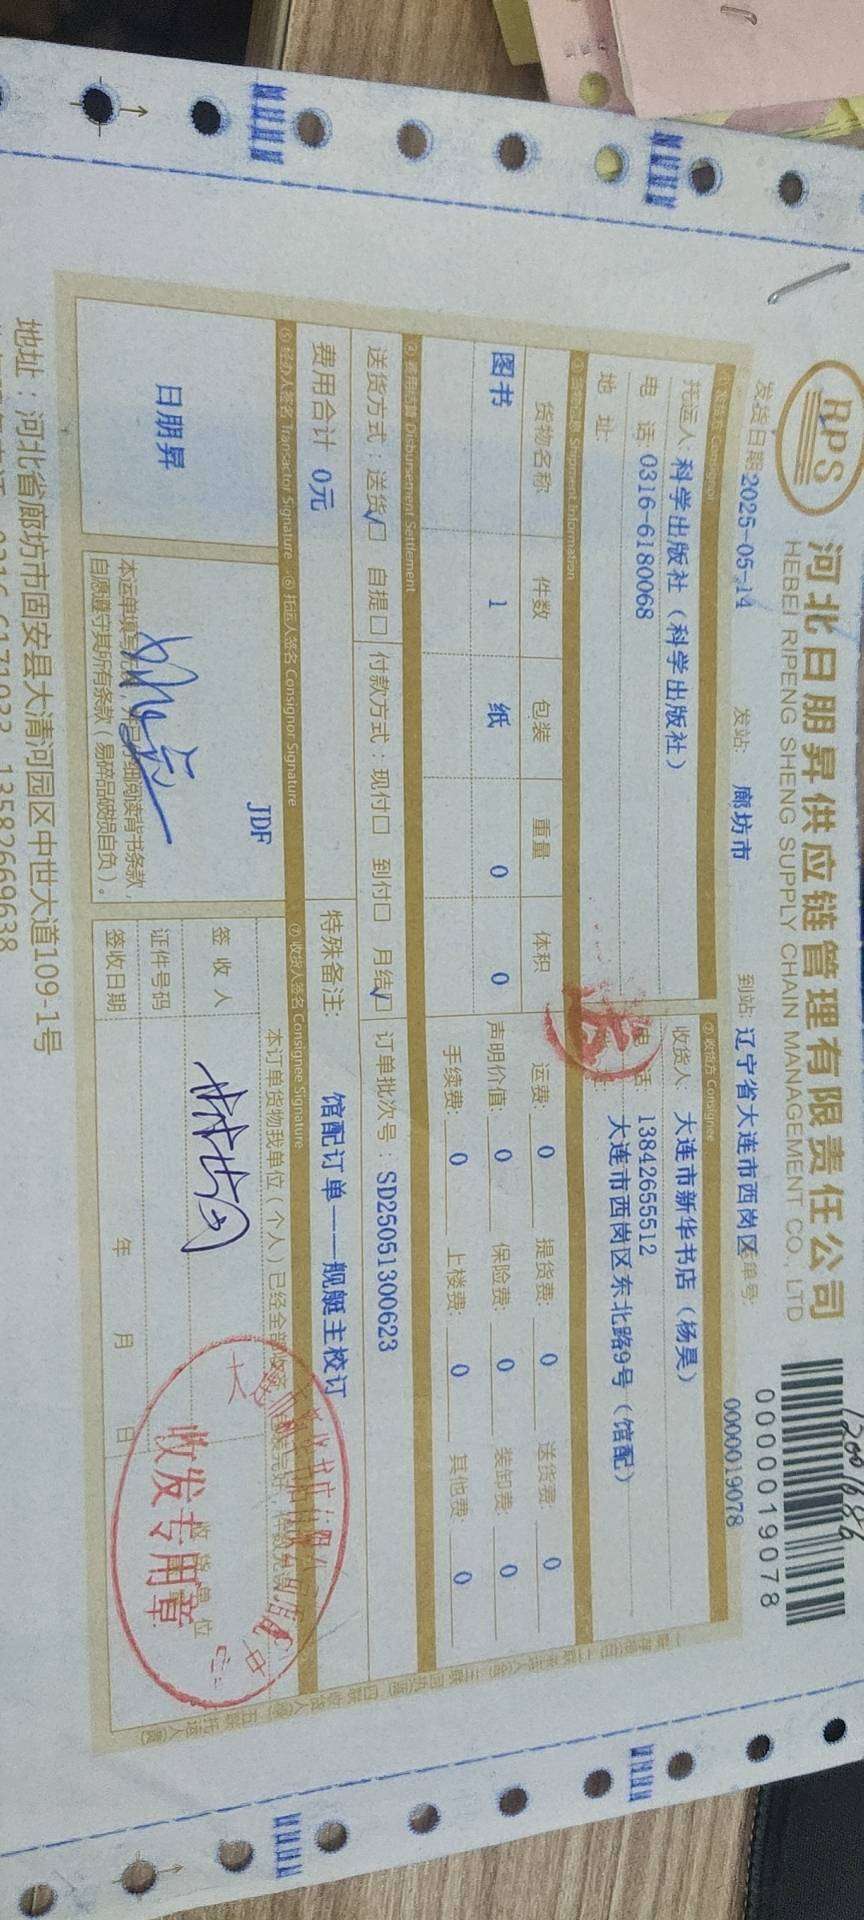 RPS
河北日朋昇供应链管理有限责任公司
HEBEI RIPENG SHENG SUPPLY CHAIN MANAGEMENT CO., LTD
0000019078
发货日期 2025-05-14 发站: 廊坊市 到站: 辽宁省大连市西岗区 单号: 0000019078
① 发货方 Consignor
② 收货方 Consignee
托运人: 科学出版社(科学出版社)
收货人: 大连市新华书店(杨昊)
电 话: 0316-6180068
电话: 13842655512
地 址:
大连市西岗区东北路9号(馆配)
③ 货物信息 Shipment Information
货物名称 件数 包装 重量 体积
运费: 0 提货费: 0 送货费: 0
图书 1 纸 0 0
声明价值: 0 保险费: 0 装卸费: 0
手续费: 0 上楼费: 0 其他费: 0
④ 费用结算 Disbursement Settlement
送货方式: 送货√□ 自提□ 付款方式: 现付□ 到付□ 月结√□ 订单批次号: SD25051300623
费用合计 0元
特殊备注: 馆配订单——舰艇主校订
⑤ 经办人签名 Transactor Signature
⑥ 托运人签名 Consignor Signature
⑦ 收货人签名 Consignee Signature
JDF
日朋昇
签 收 人
证件号码
签收日期 年 月 日
自愿遵守其所有条款(易碎品破损自负)。
收发专用章
地址:河北省廊坊市固安县大清河园区中世大道109-1号
0316-6171033 13582669638